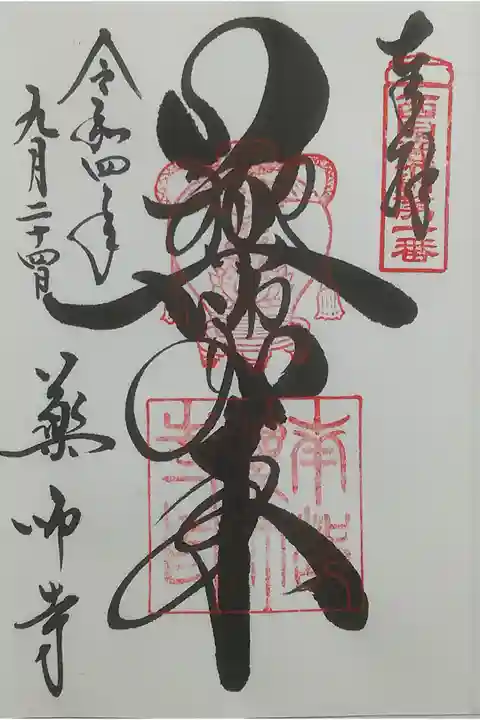 奉拝
西国薬師第一番
薬師如来
令和四年
九月二十四日
藥師寺